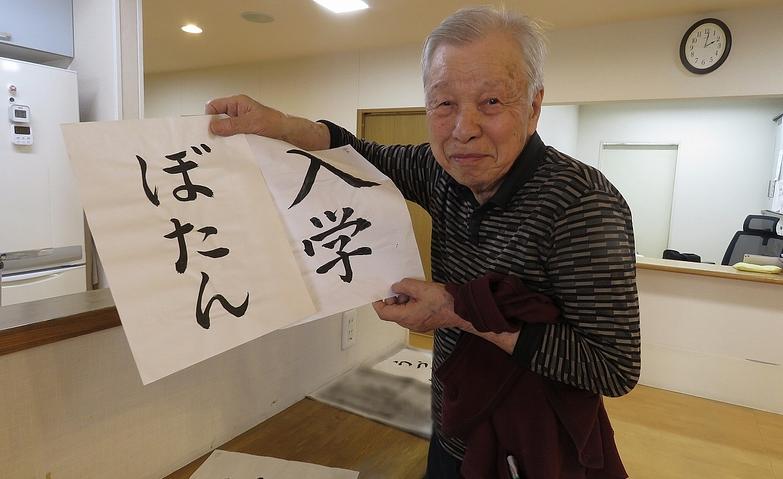 ぼたん
入学